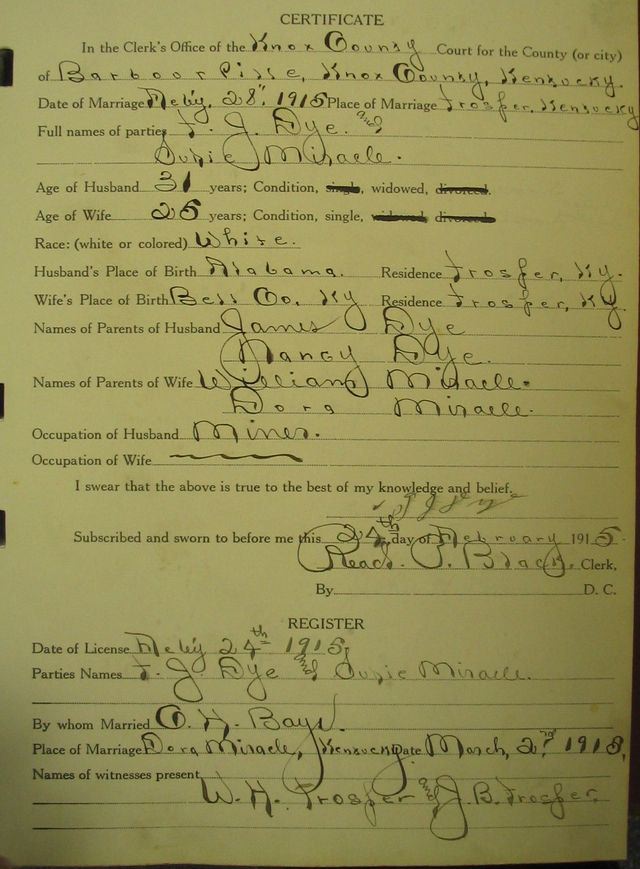 CERTIFICATE
In the Clerk's Office of the Knox County Court for the County (or city)
of Barboorville, Knox County, Kentucky.
Date of Marriage Feby, 28", 1915 Place of Marriage Trosper, Kentucky
Full names of parties T. J. Dye. and
Susie Miracle.
Age of Husband 31 years; Condition, single, widowed, divorced.
Age of Wife 25 years; Condition, single, widowed, divorced
Race: (white or colored) White.
Husband's Place of Birth Alabama. Residence Trosper, Ky.
Wife's Place of Birth Bell Co. Ky Residence Trosper, Ky.
Names of Parents of Husband James Dye
Nancy Dye.
Names of Parents of Wife William Miracle.
Dora Miracle.
Occupation of Husband Miner.
Occupation of Wife
I swear that the above is true to the best of my knowledge and belief.
T J Dye
Subscribed and sworn to before me this 24th day of February 1915.
Read. P. Black, Clerk,
By D. C.
REGISTER
Date of License Feby 24th 1915,
Parties Names T. J. Dye and Susie Miracle.
By whom Married O. H. Bays.
Place of Marriage Dora Miracle, Kentucky Date March, 2nd. 1915,
Names of witnesses present
W. H. Prosper and J. B. Trosper.